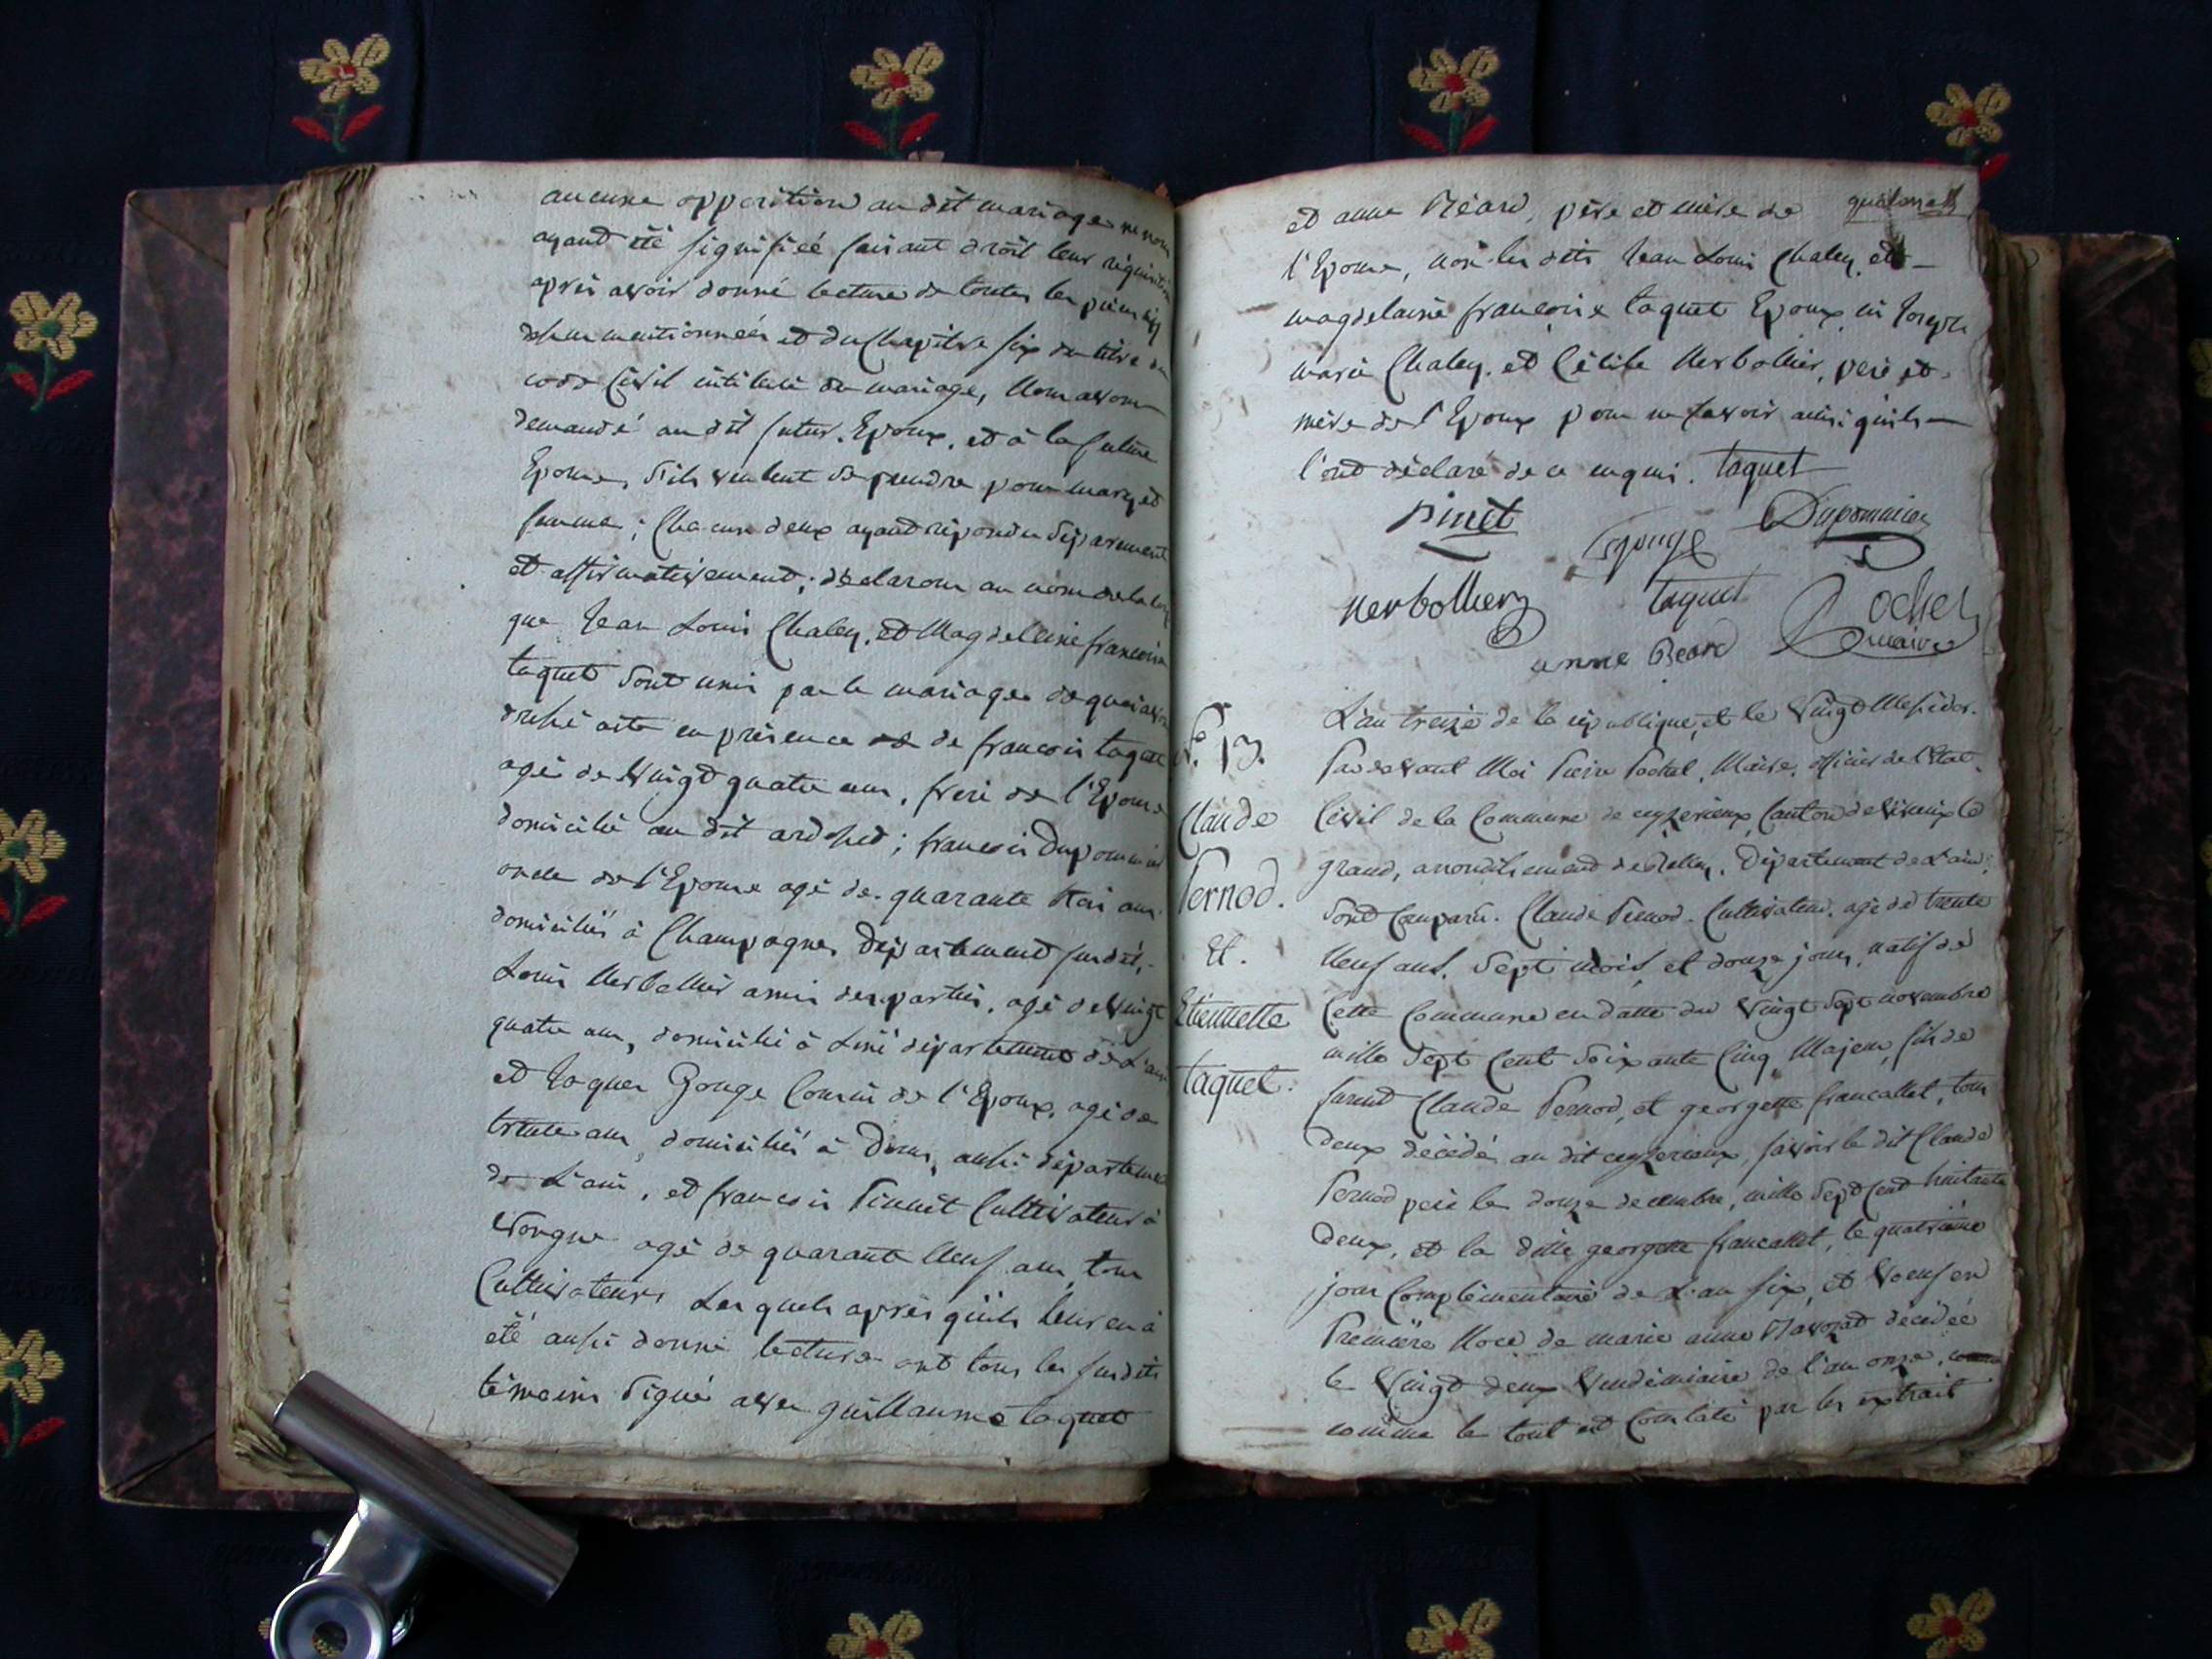 aucune opposition au dit mariage ne nous
ayand été signifieé faisant droit leur réquisition
aprés avoir donné lecture de toutes les pieces
dessus mentionneés et du Chapitre six du titre du
code Civil intitulé du mariage, Nous avons
demandé au dit futur Epoux, et à la future
Epouse, s'ils veulent se prendre pour mary et
femme; Chacun deux ayand répondu séparement
et affirmativement; déclarons au nom de la loy
que Jean Louis Chaley, et Magdeleine francoise
taquet sont unis par le mariage de quoi avons
dressé acte en présence de francois taquet
agé de Vingt quatre ans, frere de l'Epouse
domicilié au dit ardosset; francois Dupommier
oncle de l'Epouse agé de quarante trois ans
domiciliés à Champagne, Département susdit,
Louis Merbollier amis des parties, agé de Vingt
quatre ans, domicilié à département de L'ain
et Jaques Gonge Cousin de l'Epoux, agé de
trente ans, domicilié à aussi département
de L'ain, et francois Pinnet Cultivateur à
Vongne agé de quarante Neuf ans, tous
Cultivateurs Les quels après qu'ils leur en à
été aussi donné lecture ont tous les susdits
témoins signé avec guillaume taquet
quatorze
et anne Réard, père et mére de
l'Epouse, non les dits Jean Louis Chaley, et
magdelaine francoise taquet Epoux, ni Joseph
marie Chaley, et Cécile Merbollier, pere et
mére de l'Epoux pour ne savoir ainsi quils
l'ont déclaré de ce enquis. taquet
Pinet
Gonge
Dupommier
Merbollier
taquet
Rochet
maire
anne Reard
N° 13.
Claude
Pernod.
Et.
Etiennette
taquet.
L'an treize de la république, et le Vingt Messidor.
Pardevant Moi Pierre Rochet, Maire, officier de l'Etat
Civil de la Commune de ceyzerieux, Canton de Virieux le
grand, arrondissement de Belley, Département de L'ain;
Sont Comparu. Claude Pernod. Cultivateur, agé de trente
Neuf ans, Sept mois, et douze jours, natif de
Cette Commune en datte du Vingt Sept novembre
mille Sept Cent Soixante Cinq, Majeur, fils de
furent Claude Pernod, et georgette francallet, tous
deux décédé au dit ceyzerieux, savoir le dit Claude
Pernod pere le douze decembre, mille Sept Cent huitante
deux, et la ditte georgette francallet, le quatrième
jour Complémentaire de L'an six, et Voeuf en
Premiére Noce de marie anne décédée
le Vingt deux Vendémiaire de l'an onze,
comme le tout est Constaté par les extrait